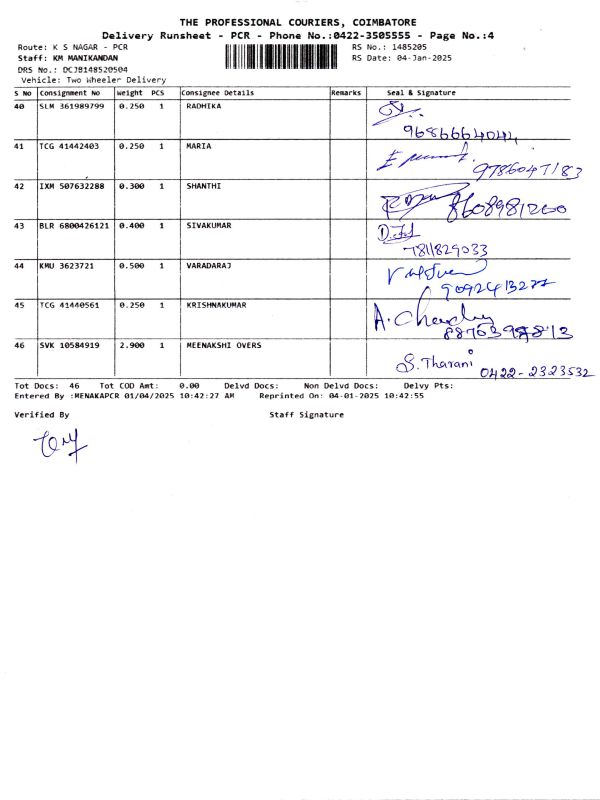 THE PROFESSIONAL COURIERS, COIMBATORE
Delivery Runsheet - PCR - Phone No.:0422-3505555 - Page No.:4
Route: K S NAGAR - PCR RS No.: 1485205
Staff: KM MANIKANDAN RS Date: 04-Jan-2025
DRS No.: DCJB148520504
Vehicle: Two Wheeler Delivery
S No Consignment No Weight PCS Consignee Details Remarks Seal & Signature
40 SLM 361989799 0.250 1 RADHIKA
41 TCG 41442403 0.250 1 MARIA
9786047183
42 IXM 507632288 0.300 1 SHANTHI
8608981200
43 BLR 6800426121 0.400 1 SIVAKUMAR
7811829033
44 KMU 3623721 0.500 1 VARADARAJ
9092413277
45 TCG 41440561 0.250 1 KRISHNAKUMAR
46 SVK 10584919 2.900 1 MEENAKSHI OVERS
S. Tharani 0422-2323532
Tot Docs: 46 Tot COD Amt: 0.00 Delvd Docs: Non Delvd Docs: Delvy Pts:
Entered By :MENAKAPCR 01/04/2025 10:42:27 AM Reprinted On: 04-01-2025 10:42:55
Verified By Staff Signature